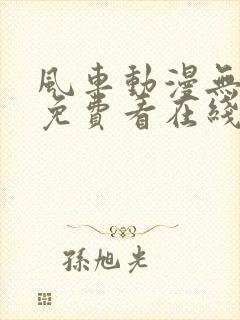 風車動漫無
免費看在綫
孫旭光